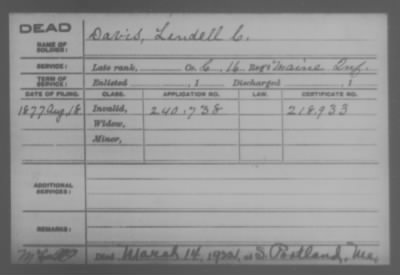 DEAD
NAME OF SOLDIER: Davis, Lendell C.
SERVICE: Late rank, Co. C, 16 Reg't Maine Inf.
TERM OF SERVICE: Enlisted , 1 Discharged , 1
DATE OF FILING. CLASS. APPLICATION NO. LAW. CERTIFICATE NO.
1877 Aug. 18 Invalid, 240.738 218.933
Widow,
Minor,
ADDITIONAL SERVICES:
REMARKS:
Died March 14, at S. Portland, Me.